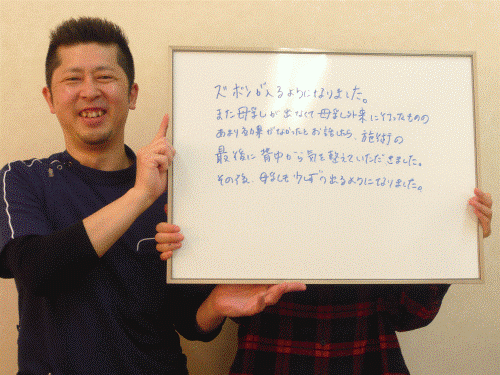 ズボンが入るようになりました。
また母乳が出なくて母乳外来に行ったものの
あまり効果がなかったとお話したら、施術の
最後に背中から気を整えていただきました。
その後、母乳も少しずつ出るようになりました。